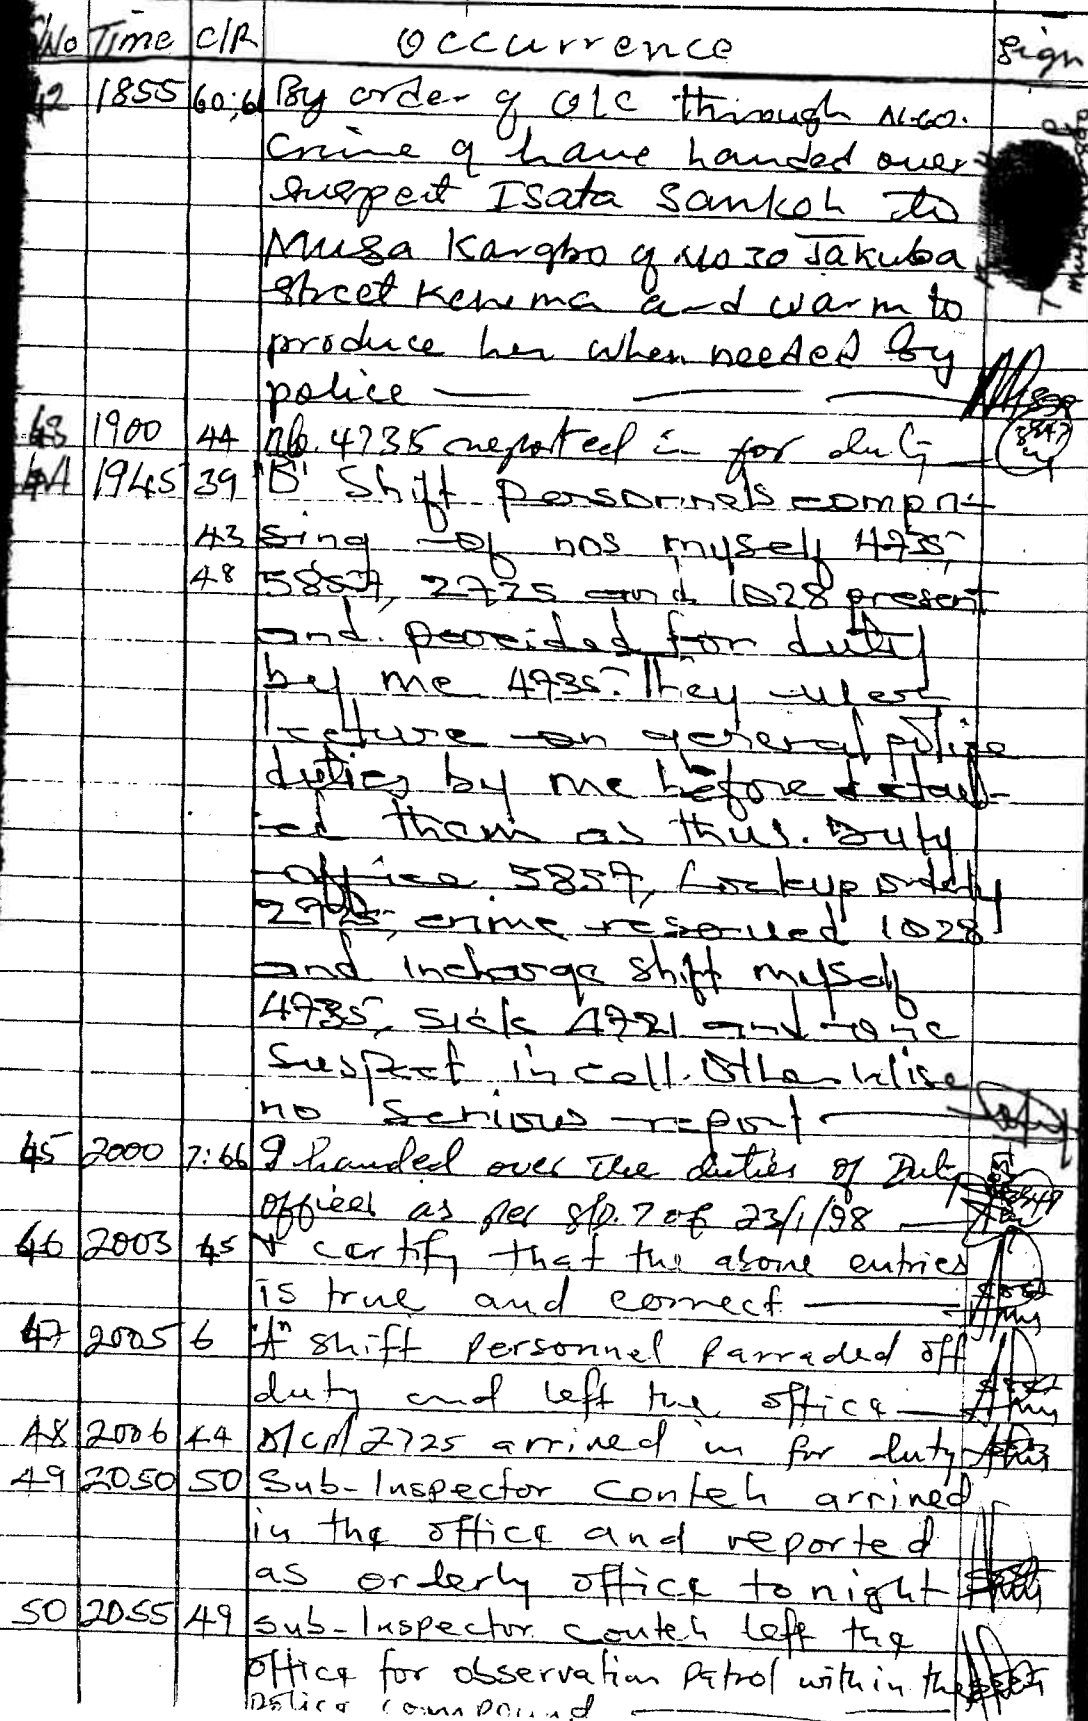 S/No Time C/R Occurrence Sign
42 1855 60;6 By order of O/C through N.C.O.
Crime I have handed over
suspect Isata Sankoh to
Musa Kargbo of No 30 Jakuba
Street Kenema and warn to
produce her when needed by
police
43 1900 44 No. 4735 reported in for duty
44 1945 39 "B" Shift personnels compri-
43 sing of nos myself 4735,
48 5857, 2725 and 1028 present
and paraded for duty
by me 4735. They were
lecture on general police
duties by me before detail-
ed them as thus. Duty
office 5857, Lockup orderly
2725, crime reserved 1028
and incharge shift myself
4735, sick 4721 and one
suspect in cell. Otherwise
no serious report
45 2000 7:66 I handed over the duties of Duty
officer as per S/D. 7 of 23/1/98
46 2003 45 I certify that the above entries
is true and correct
47 2005 6 "A" shift personnel parraded off
duty and left the office
48 2006 44 2725 arrived in for duty
49 2050 50 Sub-Inspector Conteh arrived
in the office and reported
as orderly office tonight
50 2055 49 Sub-Inspector Conteh left the
office for observation patrol within the
police compound